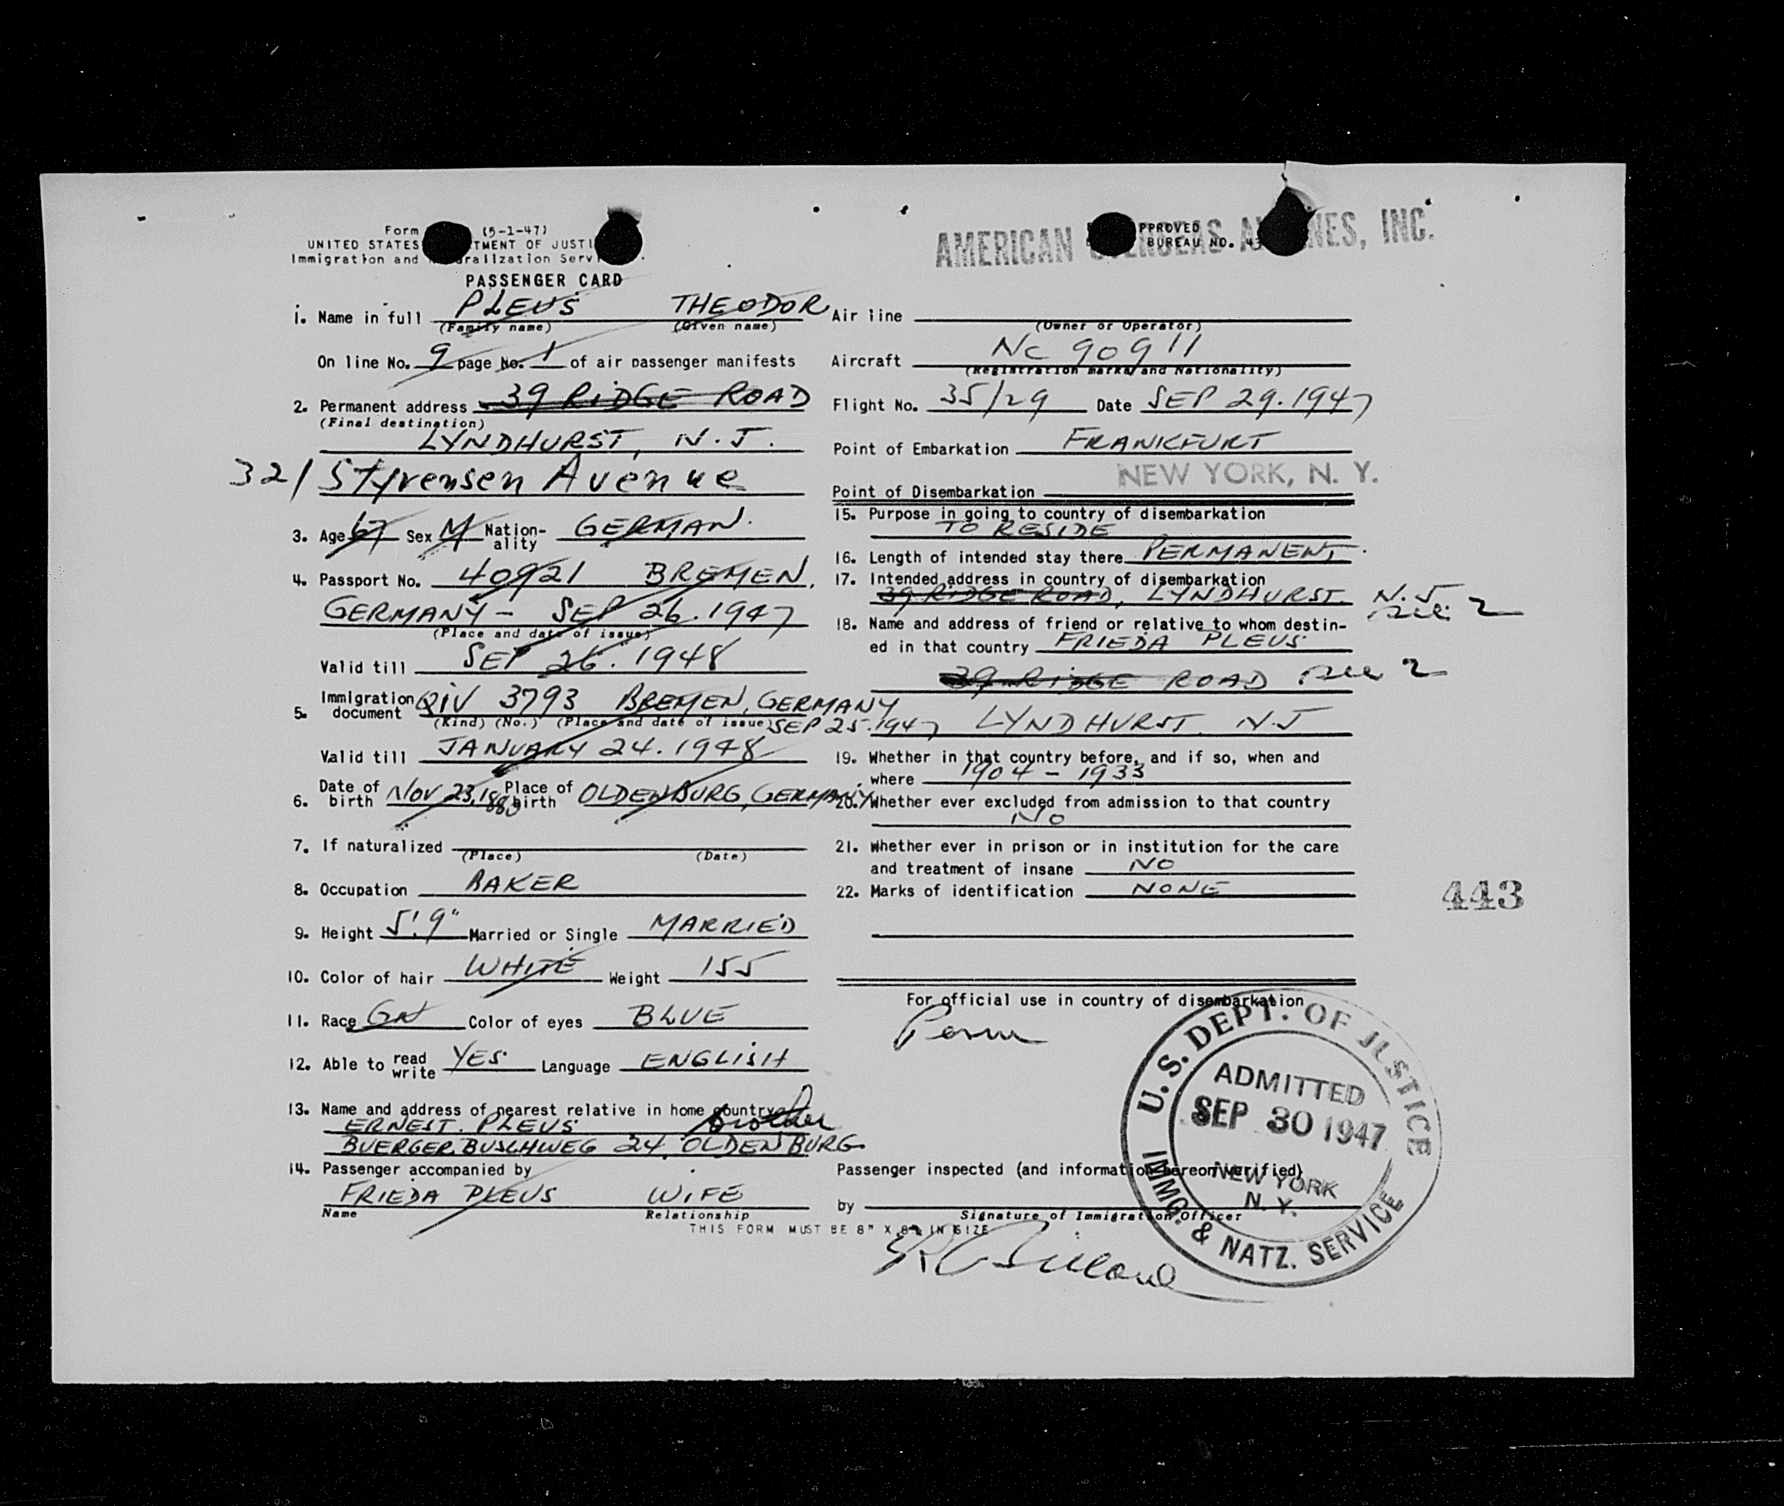 Form (5-1-47)
UNITED STATES TMENT OF JUSTI
Immigration and ralization Serv
PASSENGER CARD
AMERICAN OVERSEAS AIRLINES, INC.
PPROVED
BUREAU NO. 43
1. Name in full PLEUS THEODOR
(Family name) (Given name)
On line No. 9 page No. 1 of air passenger manifests
2. Permanent address 39 RIDGE ROAD
(Final destination)
LYNDHURST, N.J.
321 Styvensen Avenue
3. Age 67 Sex M Nation-ality GERMAN.
4. Passport No. 40921 BREMEN,
GERMANY - SEP 26.1947
(Place and date of issue)
Valid till SEP 26.1948
5. Immigration document QIV 3793 BREMEN, GERMANY
(Kind) (No.) (Place and date of issue) SEP 25.1947
Valid till JANUARY 24.1948
6. Date of birth NOV 23, Place of birth OLDENBURG, GERMANY
7. If naturalized
(Place) (Date)
8. Occupation BAKER
9. Height 5'.9" Married or Single MARRIED
10. Color of hair WHITE Weight 155
11. Race Color of eyes BLUE
12. Able to read write YES Language ENGLISH
13. Name and address of nearest relative in home country brother
ERNEST. PLEUS
BUERGER BUSCHWEG 24 OLDENBURG
14. Passenger accompanied by
FRIEDA PLEUS WIFE
Name Relationship
THIS FORM MUST BE 8" X 8½ IN SIZE
Air line
(Owner or Operator)
Aircraft NC 90911
(Registration marks and Nationality)
Flight No. 35/29 Date SEP 29.1947
Point of Embarkation FRANKFURT
NEW YORK, N. Y.
Point of Disembarkation
15. Purpose in going to country of disembarkation
TO RESIDE
16. Length of intended stay there PERMANENT.
17. Intended address in country of disembarkation
39 RIDGE ROAD, LYNDHURST. N.J
see 2
18. Name and address of friend or relative to whom destin-
ed in that country FRIEDA PLEUS
39 RIDGE ROAD see 2
LYNDHURST N.J
19. Whether in that country before, and if so, when and
where 1904 - 1933
20. Whether ever excluded from admission to that country
No
21. Whether ever in prison or in institution for the care
and treatment of insane NO
22. Marks of identification NONE
443
For official use in country of disembarkation
Perm
U.S. DEPT. OF JUSTICE
ADMITTED
SEP 30 1947
NEW YORK
N. Y.
IMMG. & NATZ. SERVICE
Passenger inspected (and information hereon verified)
by
Signature of Immigration Officer